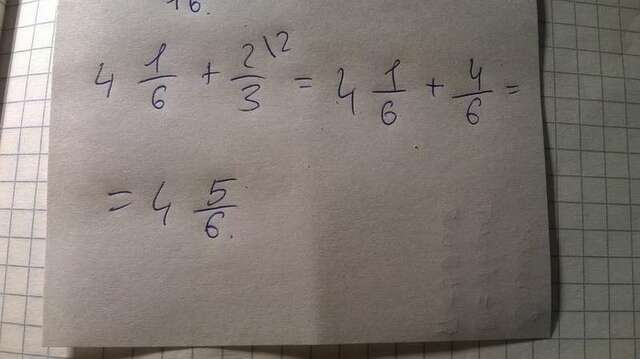 16.
4 1/6 + 2/3 \2 = 4 1/6 + 4/6 =
= 4 5/6.